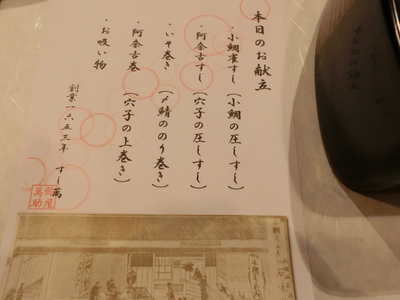 本日のお献立
・小鯛雀すし（小鯛の圧しすし）
・阿奈古すし（穴子の圧しすし）
・いそ巻き（〆鯖ののり巻き）
・阿奈古巻（穴子の上巻き）
・お吸い物
創業一六五三年 すし萬